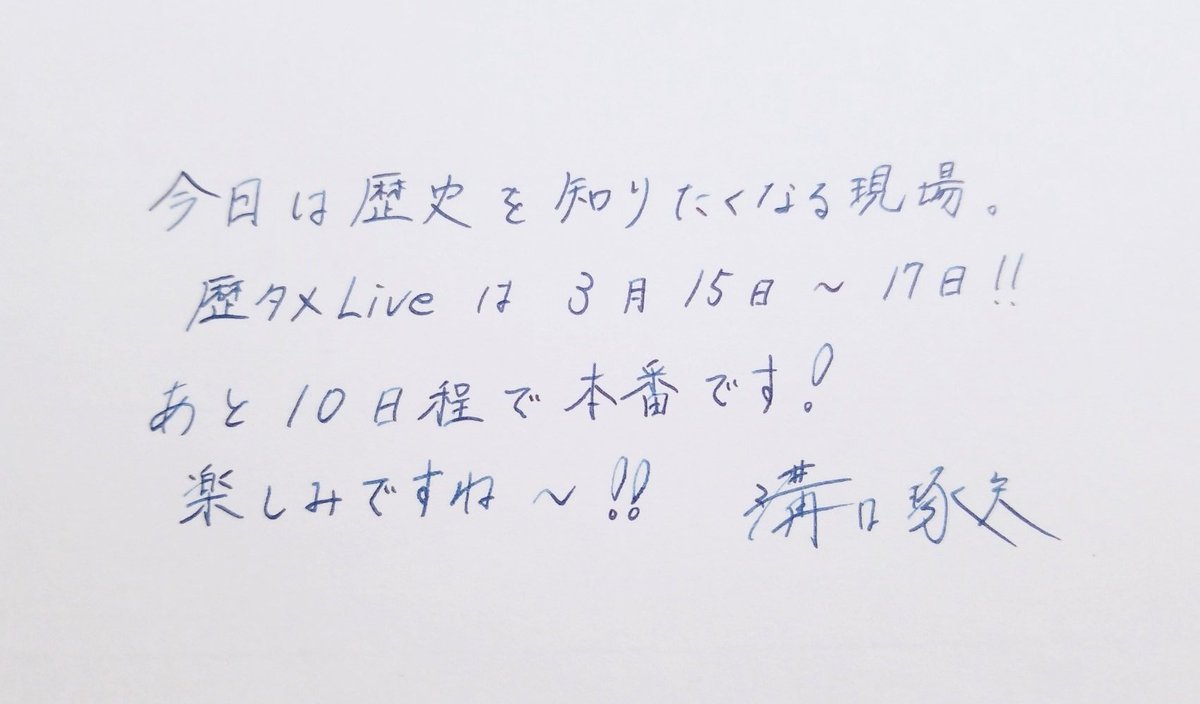 今日は歴史を知りたくなる現場。
歴タメLiveは3月15日～17日!!
あと10日程で本番です!
楽しみですね～!!
溝口琢矢